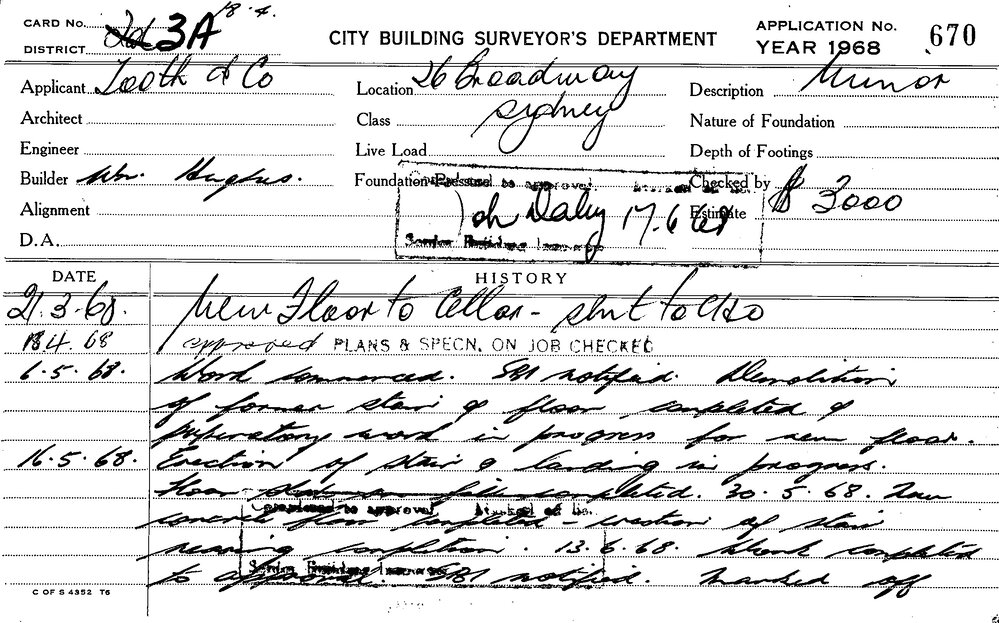 18.4.
CARD No. 3A
DISTRICT
CITY BUILDING SURVEYOR'S DEPARTMENT
APPLICATION No. 670
YEAR 1968
Applicant Tooth & Co
Location 26 Broadway
Sydney
Description Minor
Architect
Class
Nature of Foundation
Engineer
Live Load
Depth of Footings
Builder Wm. Hughes.
Foundation Pressure
Checked by
Completed to approval. Marked off No.
Alignment
Joh Daley 17.6.68
Estimate $ 3000
D.A.
Senior Building Inspector
DATE
HISTORY
21.3.68. New Floor to Cellar - sent to
18.4.68 approved PLANS & SPECN. ON JOB CHECKED
6.5.68. Work commenced. SBI notified. Demolition
of former stair & floor completed &
preparatory work in progress for new floor.
16.5.68. Erection of stair & landing in progress.
Floor fill completed. 30.5.68. New
concrete floor completed - erection of stair
Completed to approval. Marked off No.
nearing completion. 13.6.68. Work completed
Senior Building Inspector
to approval. SBI notified. Marked off
C OF S 4352 T6